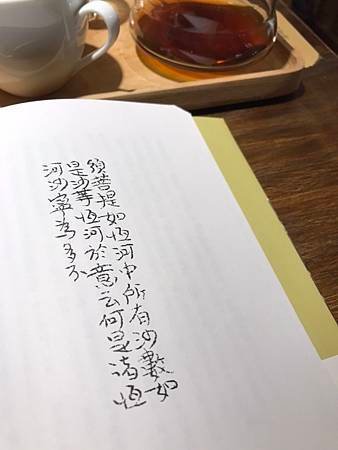 須菩提如恆河中所有沙數如
是沙等恆河於意云何是諸恆
河沙寧為多不